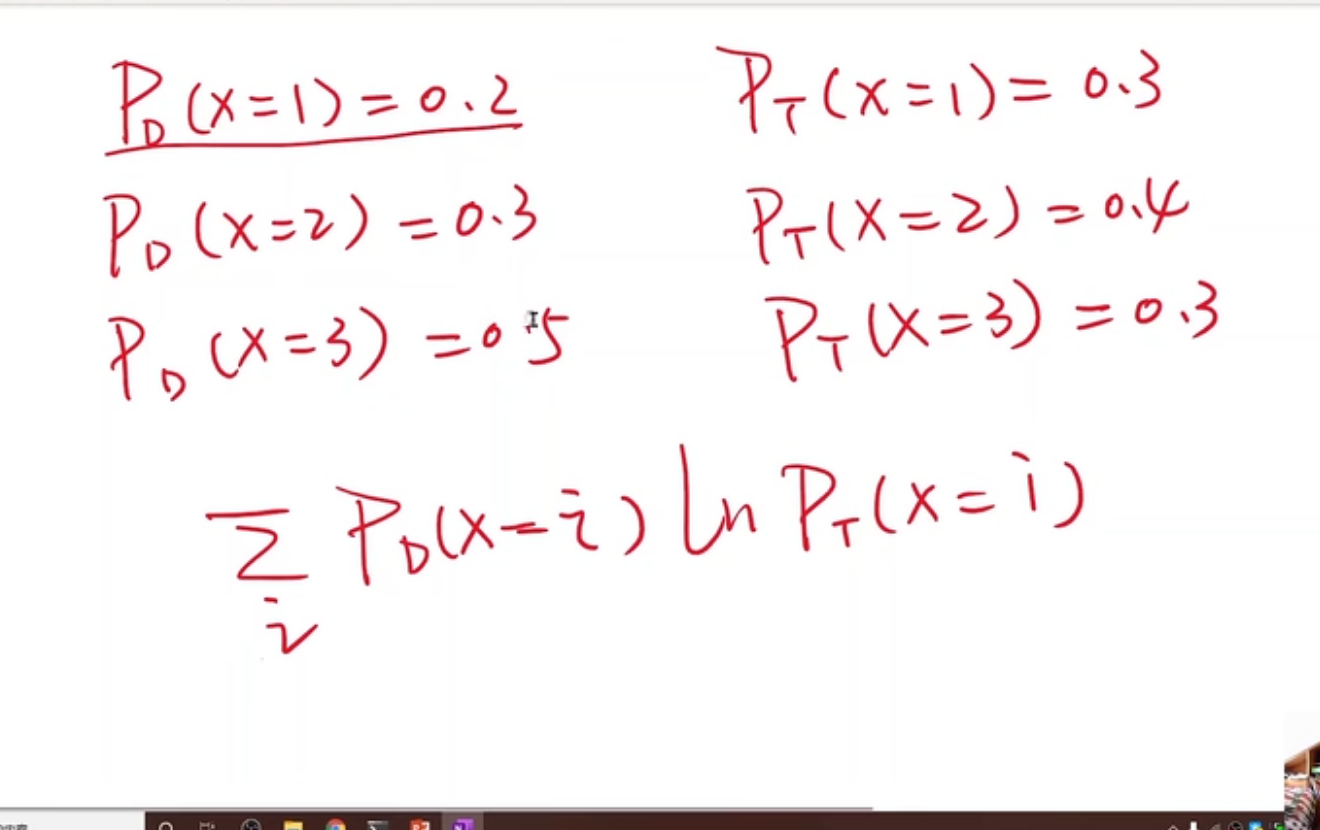 P_D(x=1)=0.2 P_T(x=1)=0.3
P_D(x=2)=0.3 P_T(x=2)=0.4
P_D(x=3)=0.5 P_T(x=3)=0.3
Σ_i P_D(x=i) ln P_T(x=i)